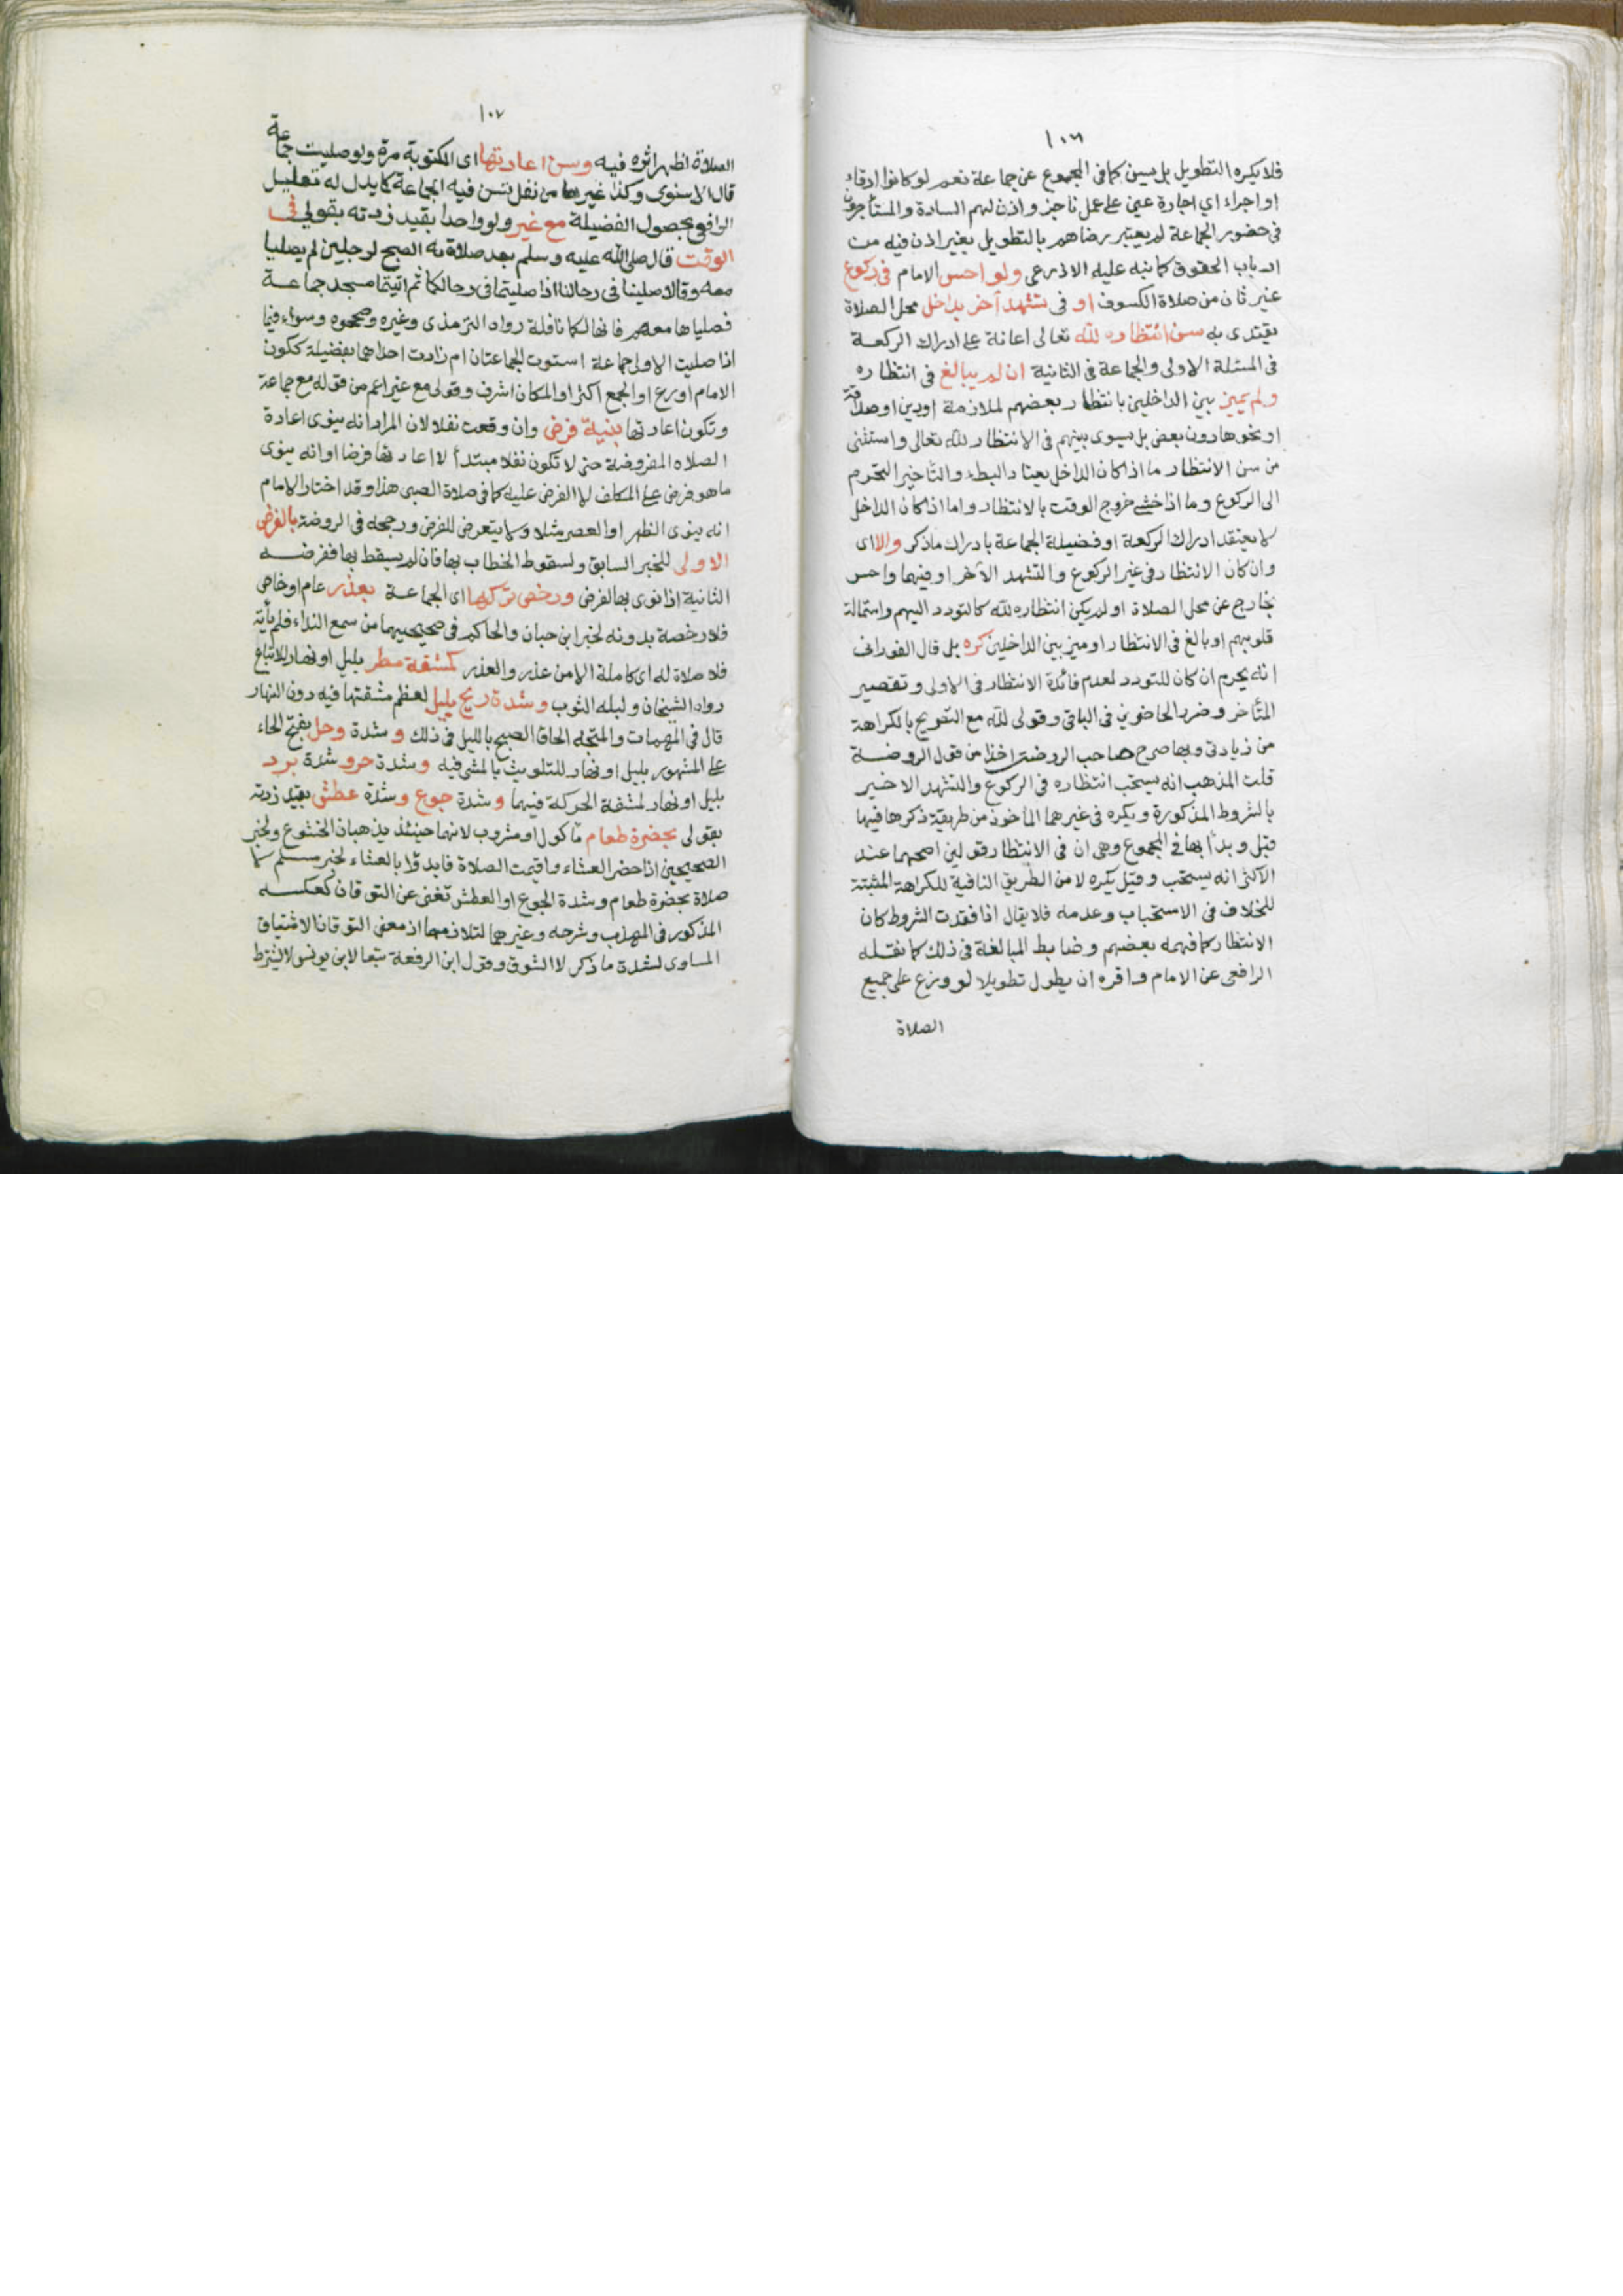 ١٠٦
فلا يكره التطويل بل يسن كما في المجموع عن جماعة نعم لو كانوا ارقاء
او اجراء اي اجارة عين على عمل ناجز واذن لهم السادة والمستأجرون
في حضور الجماعة لم يعتبر رضاهم بالتطويل بغير اذن فيه من
ارباب الحقوق كما نبه عليه الاذرعي ولو احس الامام في ركوع
غير ثان من صلاة الكسوف او في تشهد آخر بداخل محل الصلاة
يقتدى به سن انتظاره لله تعالى اعانة على ادراك الركعة
في المسئلة الاولى والجماعة في الثانية ان لم يبالغ في انتظاره
ولم يميز بين الداخلين بانتظار بعضهم لملازمة او دين او صداقة
او نحوها دون بعض بل يسوى بينهم في الانتظار لله تعالى واستثنى
من سن الانتظار ما اذا كان الداخل يعتاد البطء والتأخير التحرم
الى الركوع وما اذا خشي خروج الوقت بالانتظار واما اذا كان الداخل
لا يعتقد ادراك الركعة او فضيلة الجماعة بادراك ماذكر والا اى
وان كان الانتظار في غير الركوع والتشهد الآخر او فيهما واحس
بخارج عن محل الصلاة او لم يكن انتظاره لله كالتودد اليهم واستمالة
قلوبهم او بالغ في الانتظار او ميز بين الداخلين كره بل قال الفوراني
انه يحرم ان كان للتودد لعدم فائدة الانتظار في الاولى وتقصير
المتأخر وضرر الحاضرين في الباقي وقولى لله مع التصريح بالكراهة
من زيادتى وبها صرح صاحب الروضة اخذا من قول الروضة
قلت المذهب انه يستحب انتظاره في الركوع والتشهد الاخير
بالشروط المذكورة ويكره في غيرهما المأخوذ من طريقة ذكرها فيها
قبل وبدأ بها في المجموع وهي ان في الانتظار قولين اصحهما عند
الاكثر انه يستحب وقيل يكره لا من الطريق النافية للكراهة المثبتة
للخلاف في الاستحباب وعدمه فلا يقال اذا فقدت الشروط كان
الانتظار كما فهمه بعضهم وضابط المبالغة في ذلك كما نقله
الرافعي عن الامام واقره ان يطول تطويلا لو وزع على جميع
الصلاة
١٠٧
الصلاة لظهر اثره فيه وسن اعادتها اى المكتوبة مرة ولو صليت جماعة
قال الاسنوى وكذا غيرها من نفل تسن فيه الجماعة كما يدل له تعليل
الرافعي بحصول الفضيلة مع غير ولو واحدا بقيد زدته بقولي في
الوقت قال صلى الله عليه وسلم بعد صلاته الصبح لرجلين لم يصليا
معه وقالا صلينا في رحالنا اذا صليتما في رحالكما ثم اتيتما مسجد جماعة
فصلياها معهم فانها لكما نافلة رواه الترمذى وغيره وصححوه وسواء فيما
اذا صليت الاولى جماعة استوت الجماعتان ام زادت احداهما بفضيلة ككون
الامام اورع او الجمع اكثر او المكان اشرف وقولى مع غير اعم من قوله مع جماعة
وتكون اعادتها بنية فرض وان وقعت نفلا لان المراد انه ينوى اعادة
الصلاه المفروضة حتى لا تكون نفلا مبتدأ لا اعادتها فرضا او انه ينوى
ما هو فرض على المكلف لا الفرض عليه كما في صلاة الصبى هذا وقد اختار الامام
انه ينوى الظهر او العصر مثلا ولا يتعرض للفرض ورجحه في الروضة والفرض
الاولى للخبر السابق ولسقوط الخطاب بها فان لم يسقط بها ففرضه
الثانية اذا نوى بها الفرض ورخص تركها اى الجماعة بعذر عام او خاص
فلا رخصة بدونه لخبر ابن حبان والحاكم في صحيحيهما من سمع النداء فلم يأته
فلا صلاة له اى كاملة الا من عذر والعذر كمشقة مطر بليل او نهار للاتباع
رواه الشيخان ولبله الثوب وشدة ريح بليل لعظم مشقتها فيه دون النهار
قال في المهمات والمتجه الحاق الصبح بالليل في ذلك وشدة وحل بفتح الحاء
على المشهور بليل او نهار للتلويث بالمشي فيه وشدة حر وشدة برد
بليل او نهار لمشقة الحركة فيهما وشدة جوع وشدة عطش بقيد زدته
بقولى بحضرة طعام مأكول او مشروب لانهما حينئذ يذهبان الخشوع ولخبر
الصحيحين اذا حضر العشاء واقيمت الصلاة فابدؤا بالعشاء لخبر مسلم لا
صلاة بحضرة طعام وشدة الجوع او العطش تغنى عن التوقان كعكسه
المذكور في المهذب وشرحه وغيرهما لتلازمهما اذ معنى التوقان الاشتياق
المساوى لشدة ما ذكر لا الشوق وقول ابن الرفعة تبعا لابن يونس لا يشترط